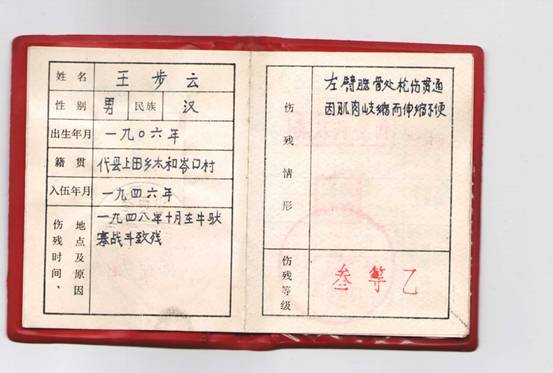 姓名 王步云
性别 男 民族 汉
出生年月 一九〇六年
籍贯 代县上田乡木和岺口村
入伍年月 一九四六年
伤残时间、地点及原因 一九四八年十月至牛驮
寨战斗致残
伤残情形 左臂腿骨处枪伤贯通
因肌肉岐缩而伸缩不便
伤残等级 叁等乙